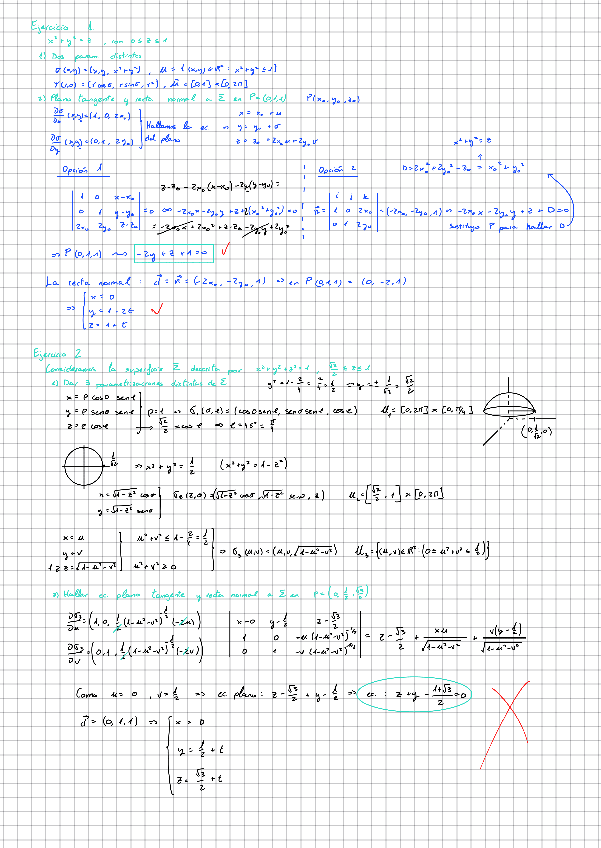 Ejercicio 1.
x²+y²=z , con 0≤z≤1
1) Dos param distintas
σ(x,y)=(x,y, x²+y²) , μ = { (x,y)∈ℝ² : x²+y²≤1}
γ(r,θ)=(r cosθ, r senθ, r²) , μ̃ = [0,1]×[0,2π]
2) Plano tangente y recta normal a Σ en P=(0,1,1) P(x₀, y₀, z₀)
∂σ/∂x (x,y)=(1, 0, 2x₀)
∂σ/∂y (x,y)=(0, 1, 2y₀)
Hallamos la ec
del plano
x = x₀ + u
⇒ y = y₀ + v
z = z₀ + 2x₀u + 2y₀v
x²+y²=z
Opción 1
z-z₀-2x₀(x-x₀)-2y₀(y-y₀)=
| 1 0 x-x₀ |
| 0 1 y-y₀ | = 0
| 2x₀ 2y₀ z-z₀ |
Opción 2
D=2x₀²+2y₀²-z₀ = x₀²+y₀²
| i j k |
n⃗ = | 1 0 2x₀ | = (-2x₀, -2y₀, 1) ⇒ -2x₀x - 2y₀y + z + D = 0
| 0 1 2y₀ |
sustituyo P para hallar D
⇒ P(0,1,1) ⟿ -2y + z + 1 = 0
La recta normal : d⃗ = n⃗ = (-2x₀, -2y₀, 1) ⇒ en P(0,1,1) = (0, -2, 1)
⇒ { x = 0
y = 1 - 2t
z = 1 + t
Ejercicio 2
Consideramos la superficie Σ descrita por x²+y²+z²=1 , √2/2 ≤ z ≤ 1
1) Dar 3 parametrizaciones distintas de Σ
y²=1-2/4=2/4=1/2 ⇒ y=± 1/√2 = √2/2
x = ρ cosθ senφ
y = ρ senθ senφ
z = ρ cosφ
ρ=1 ⇒ σ₁(θ,φ)=(cosθ senφ, senθ senφ, cosφ) μ₁=[0,2π]×[0,π/4]
√2/2 = cosφ ⇒ φ=45°=π/4
(0,1/√2,0)
1/√2
⇒ x²+y²=1/2 (x²+y²=1-z²)
x=√1-z² cosθ
y=√1-z² senθ
σ₂(z,θ)=(√1-z² cosθ, √1-z² senθ, z) μ₂=[√2/2, 1]×[0,2π]
x = u
y = v
1≥z=√1-u²-v²
u²+v² ≤ 1-2/4=1/2
u²+v² ≥ 0
⇒ σ₃(u,v)=(u,v,√1-u²-v²) μ₃={(u,v)∈ℝ² (0≤u²+v²≤1/2)}
2) Hallar ec plano tangente y recta normal a Σ en P=(0,1/2,√3/2)
∂σ₃/∂u=(1, 0, 1/2(1-u²-v²)^-1/2(-2u))
∂σ₃/∂v=(0,1,1/2(1-u²-v²)^-1/2(-2v))
| x-0 y-1/2 z-√3/2 |
| 1 0 -u(1-u²-v²)^-1/2 | = z-√3/2 + xu/√1-u²-v² + v(y-1/2)/√1-u²-v²
| 0 1 -v(1-u²-v²)^-1/2 |
Como u=0 , v=1/2 ⇒ ec plano : z-√3/2 + y-1/2 ⇒ ec : z+y - (1+√3)/2=0
d⃗ = (0,1,1) ⇒ { x = 0
y = 1/2 + t
z = √3/2 + t